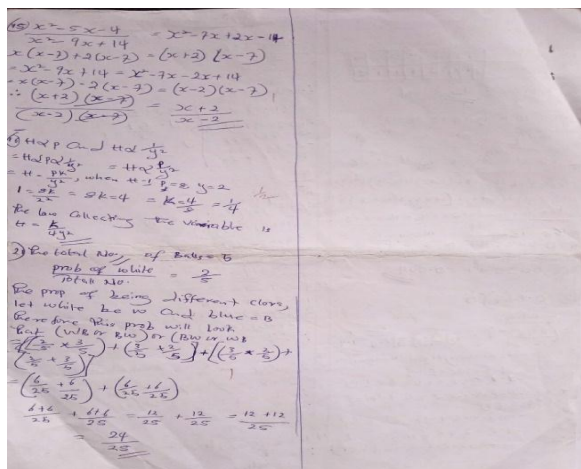 15) x²-5x-4 / x²-9x+14 = x²-7x+2x-14
x(x-7)+2(x-7) = (x+2)(x-7)
= x²-9x+14 = x²-7x-2x+14
= x(x-7)-2(x-7) = (x-2)(x-7)
∴ (x+2)(x-7) / (x-2)(x-7) = x+2 / x-2
H α p and H α 1/y²
= H α p α 1/y² = H α p/y²
= H = pk/y², when H=1 p=8, y=2
1 = 8k/2² = 8k=4 = k=4/8 = 1/4
The law collecting the variable is
H = /4y²
2) The total No, of Balls = 5
prob of white / Total No. = 2/5
The prop of being different clors,
let white be w and blue = B
therefore this prob will look
that (WB or BW) or (BW or WB
= [(2/5 × 3/5) + (3/5 × 2/5)] + [(3/5 × 2/5) +
(2/5 × 3/5)]
= (6/25 + 6/25) + (6/25 + 6/25)
6+6/25 + 6+6/25 = 12/25 + 12/25 = 12+12/25
= 24/25